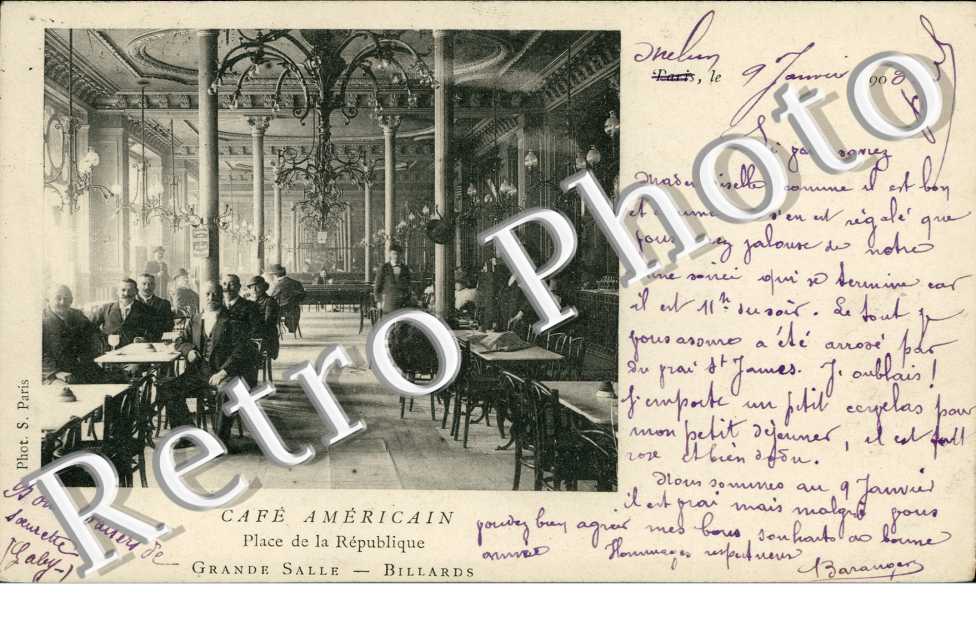 Melun
Paris, le 9 Janvier 190
Si vous saviez
Mademoiselle comme il est bon
et comme s'en est régalé que
vous serez jalouse de notre
fine soirée qui se termine car
il est 11h du soir. Le tout je
vous assure a été arrosé par
du vrai St James. J'oubliais!
J'emporte un petit cervelas pour
mon petit déjeuner, il est tout
rose et bien dodu.
Nous sommes au 9 Janvier
il est vrai mais malgré vous
pouvez bien agréer mes bons souhaits de bonne
année Hommages respectueux
Baranger
Phot. S. Paris
CAFÉ AMÉRICAIN
Place de la République
GRANDE SALLE — BILLARDS
Bons baisers de
soeurette
(Gaby)
Retro Photo